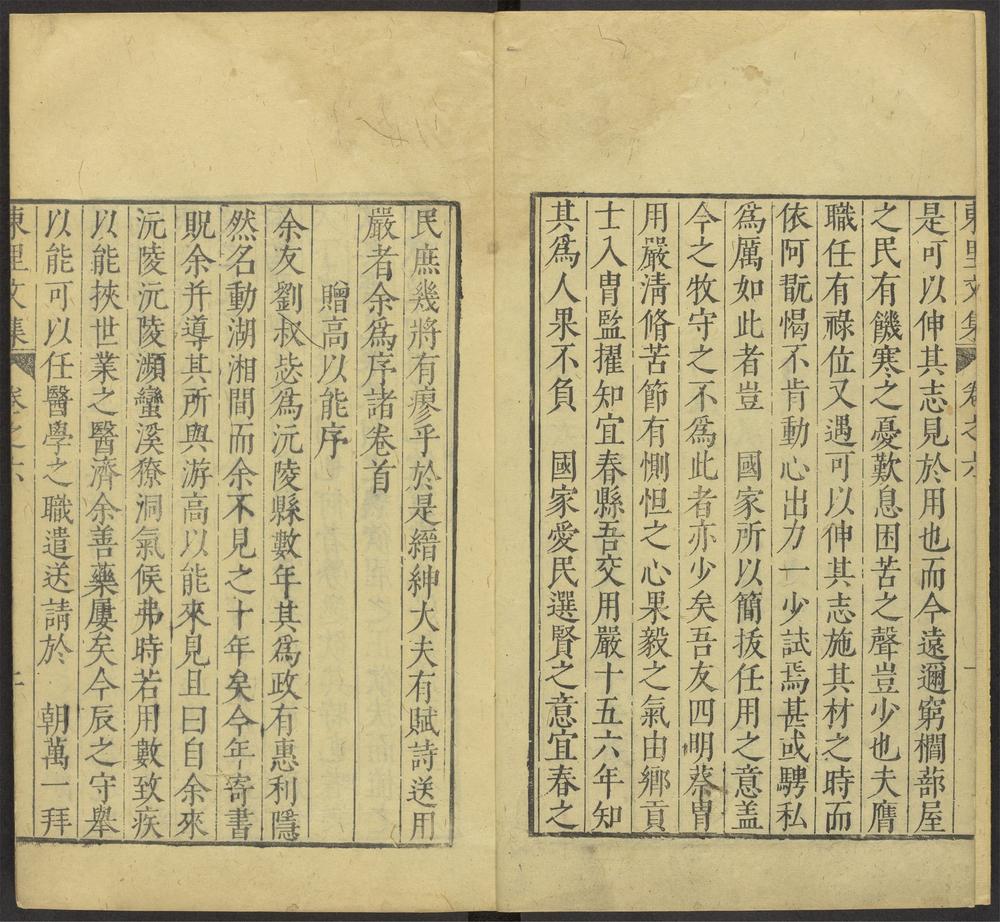 東里文集 卷之六
是可以伸其志見於用也而今遠邇窮櫩蔀屋
之民有饑寒之憂歎息困苦之聲豈少也夫膺
職任有祿位又遇可以伸其志施其材之時而
依阿翫愒不肯動心出力一少試焉甚或騁私
為厲如此者豈 國家所以簡拔任用之意盖
今之牧守之不為此者亦少矣吾友四明蔡冑
用嚴淸脩苦節有惻怛之心果毅之氣由鄉貢
士入冑監擢知宜春縣吾交用嚴十五六年知
其爲人果不負 國家愛民選賢之意宜春之
民庶幾將有瘳乎於是縉紳大夫有賦詩送用
嚴者余爲序諸卷首
贈高以能序
余友劉叔毖爲沅陵縣數年其爲政有惠利隱
然名動湖湘間而余不見之十年矣今年寄書
貺余并導其所與游高以能來見且曰自余來
沅陵沅陵瀕蠻溪獠洞氣候弗時若用數致疾
以能挾世業之醫濟余善藥屢矣今辰之守舉
以能可以任醫學之職遣送請於 朝萬一拜
東里文集 卷之六